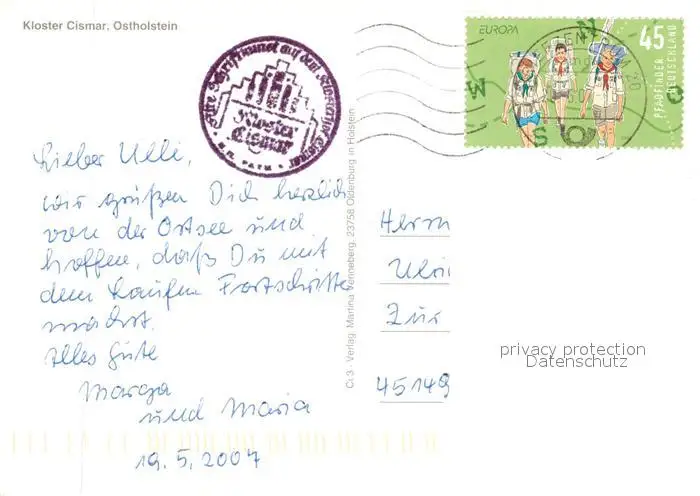 Kloster Cismar, Ostholstein
EUROPA
45
PFADFINDER
DEUTSCHLAND
N
W
O
S
Kloster
Cismar
Lieber Ulli,
wir grüßen Dich herzlich
von der Ostsee und
hoffen, daß Du mit
dem Laufen Fortschritte
machst.
Alles Gute
Marga
und Maria
19.5.2007
Ci 3 - Verlag Martina Wenneberg, 23758 Oldenburg in Holstein
Herrn
Ulri
Zur
45149
privacy protection
Datenschutz